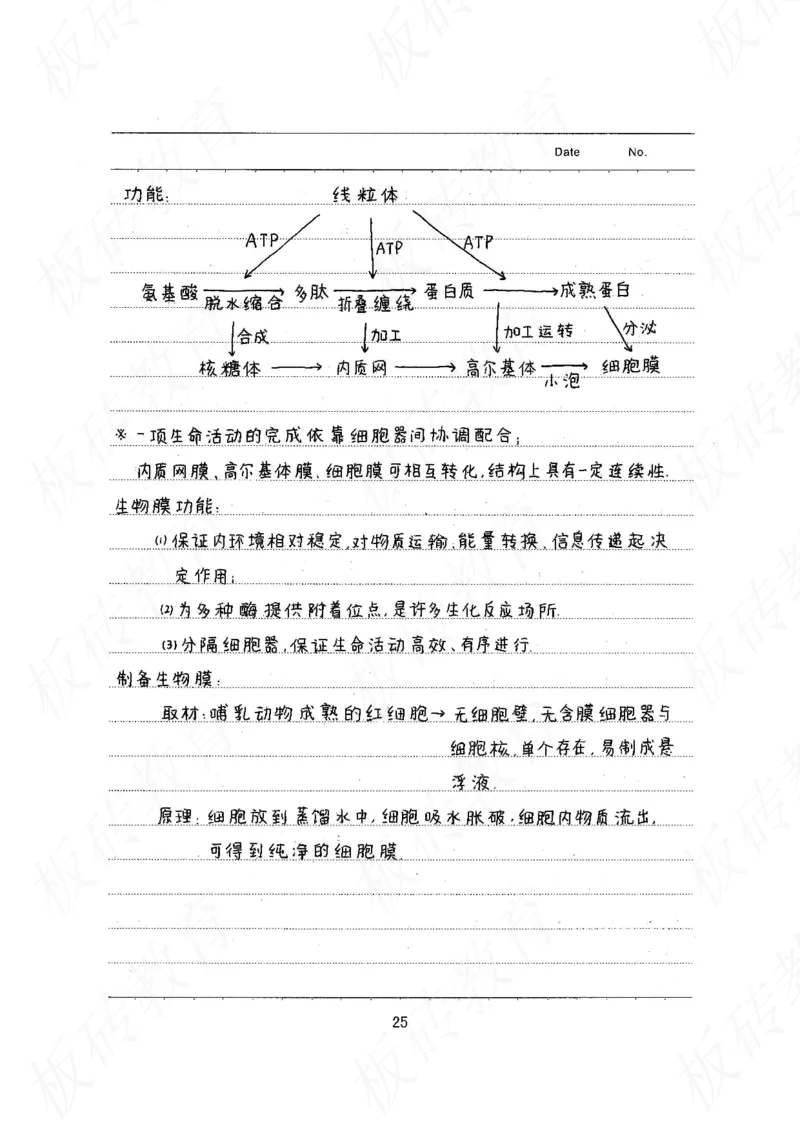 Date No.
功能: 线粒体
ATP ATP ATP
氨基酸 脱水缩合 多肽 折叠缠绕 蛋白质 成熟蛋白
合成 加工 加工运转 分泌
核糖体 内质网 高尔基体 小泡 细胞膜
※ 一项生命活动的完成依靠细胞器间协调配合;
内质网膜、高尔基体膜、细胞膜可相互转化,结构上具有一定连续性.
生物膜功能:
(1)保证内环境相对稳定,对物质运输、能量转换、信息传递起决
定作用;
(2)为多种酶提供附着位点,是许多生化反应场所.
(3)分隔细胞器,保证生命活动高效、有序进行.
制备生物膜:
取材:哺乳动物成熟的红细胞→无细胞壁,无含膜细胞器与
细胞核,单个存在,易制成悬
浮液.
原理:细胞放到蒸馏水中,细胞吸水胀破,细胞内物质流出,
可得到纯净的细胞膜.
25
板砖教育